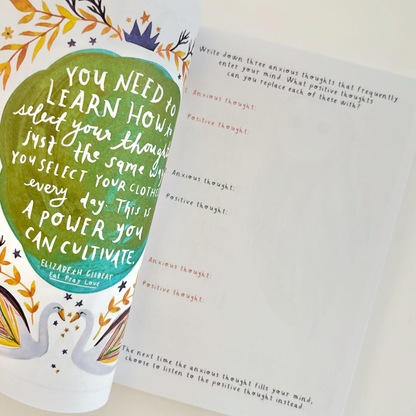 YOU NEED to
LEARN HOW to
select your thoughts
just the same way
YOU SELECT YOUR CLOTHES
every day. This is
A POWER YOU
CAN CULTIVATE.
ELIZABETH GILBERT
Eat Pray Love
Write down three anxious thoughts that frequently
enter your mind. What positive thoughts
can you replace each of these with?
Anxious thought:
Positive thought:
Anxious thought:
Positive thought:
Anxious thought:
Positive thought:
The next time the anxious thought fills your mind,
choose to listen to the positive thought instead